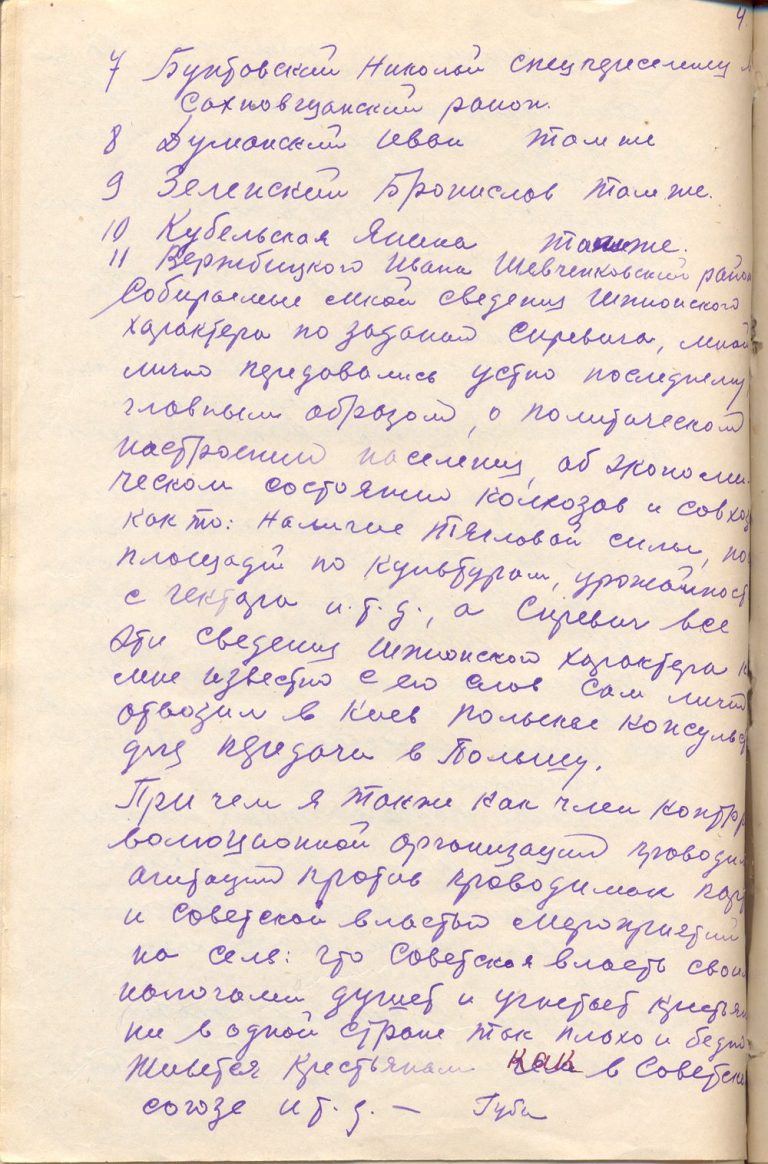 4
7 Бунтовский Николай спецпереселенец
Сахновщанский район.
8 Думанский Иван там же
9 Зеленский Бронислов там же.
10 Кубельская Янина там же.
11 Вержбицкого Ивана Шевченковский район
Собираемые мной сведения шпионского
характера по заданий Сиревича, мной
лично передовались устно последнему,
главным образом, о политическом
настроении населения, об экономи-
ческом состоянию колхозов и совхоз
как то: наличие тягловой силы, по
площадй по культурам, урожайност
с гектара и.т.д., а Сиревич все
эти сведения шпионского характера к
мне известно с его слов сам лично
отвозил в Киев Польское консульс
для передачи в Польшу.
При чем я также как член контр
волюционной организации проводил
агитации против проводимых пар
и советской властью мероприятий
на селе: что Советская власть свои
налогами душет и угнетает крестьян
ни в одной стране так плохо и бедно
живется крестьянам как в Советск
союзе и т.д. —